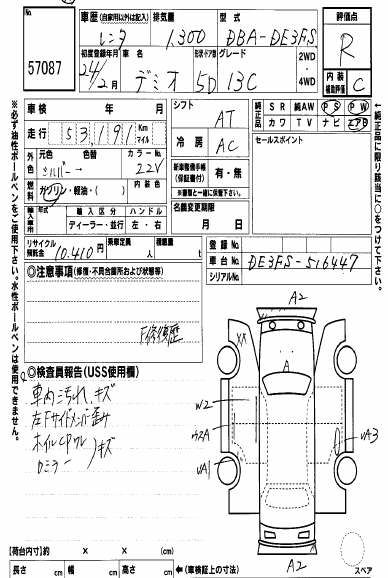 No.
57087
車歴(自家用以外は記入)
レンタ
排気量
1,300
型式
DBA-DE3FS
評価点
R
初度登録年月
24/2月
車名
デミオ
形状・ドア数
5D
グレード
13C
2WD
・
4WD
内装
補助評価
C
車検 年 月
シフト
AT
純正品
SR 純AW PS PW
カワ TV ナビ エアB
走行 53,191 Km
マイル
冷房
AC
セールスポイント
外色
元色 色替 カラーNo.
シルバー→ 22V
燃料
ガソリン・軽油・( )
内装色
新車整備手帳
(保証書付)
有・無
※書類と一緒に保管下さい。
輸入車用
年式 輸入区分 ハンドル
ディーラー・並行 左・右
名義変更期限
月 日
リサイクル
預託金
10,410円
乗車定員
人
積載量
t
登録No.
車台No.
DE3FS-516447
シリアルNo.
◎注意事項(修復・不具合箇所および状態等)
F修復歴
◎検査員報告(USS使用欄)
車内汚れ、キズ
左Fサイドメンバー歪み
ホイルCPウル
ロミラー キズ
A2
XR
A
W2
ウスA
UA1
UA3
A2
【荷台内寸】 × × (cm)
長さ cm 幅 cm 高さ cm ←(車検証上の寸法)
スペア
※必ず油性ボールペンをご使用下さい。水性ボールペンは使用できません。
純正品に限り該当に○をつけて下さい。